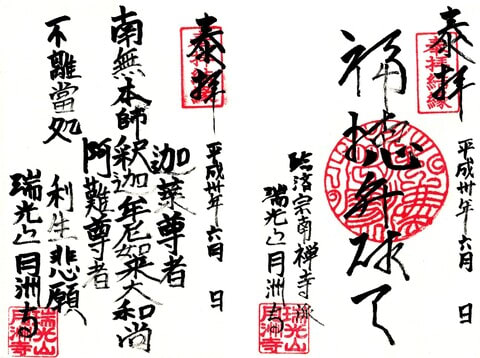 奉拝
平成卅年六月 日
臨済宗南禅寺派
瑞光山月洲寺
奉拝
平成卅年六月 日
迦葉尊者
南無本師釈迦牟尼如来大和尚
阿難尊者
不離當処
利生悲願
瑞光山月洲寺
瑞光山
月洲寺